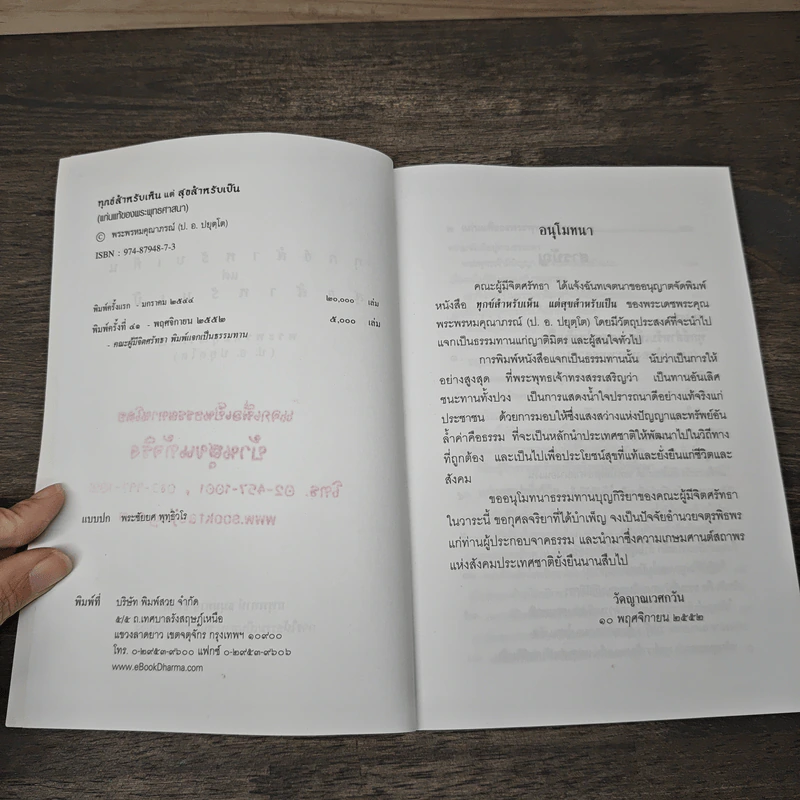 ทุกข์สำหรับเห็น แต่ สุขสำหรับเป็น
(แก่นแท้ของพระพุทธศาสนา)
© พระพรหมคุณาภรณ์ (ป. อ. ปยุตฺโต)
ISBN : 974-87948-7-3
พิมพ์ครั้งแรก - มกราคม ๒๕๔๔ ๒๐,๐๐๐ เล่ม
พิมพ์ครั้งที่ ๔๑ - พฤศจิกายน ๒๕๕๒ ๕,๐๐๐ เล่ม
- คณะผู้มีจิตศรัทธา พิมพ์แจกเป็นธรรมทาน
แบบปก พระชัยยศ พุทฺธิวโร
พิมพ์ที่ บริษัท พิมพ์สวย จำกัด
๕/๕ ถ.เทศบาลรังสฤษฎ์เหนือ
แขวงลาดยาว เขตจตุจักร กรุงเทพฯ ๑๐๙๐๐
โทร. ๐-๒๙๕๓-๙๖๐๐ แฟกซ์ ๐-๒๙๕๓-๙๖๐๖
www.eBookDharma.com
อนุโมทนา
คณะผู้มีจิตศรัทธา ได้แจ้งฉันทเจตนาขออนุญาตจัดพิมพ์
หนังสือ ทุกข์สำหรับเห็น แต่สุขสำหรับเป็น ของพระเดชพระคุณ
พระพรหมคุณาภรณ์ (ป. อ. ปยุตฺโต) โดยมีวัตถุประสงค์ที่จะนำไป
แจกเป็นธรรมทานแก่ญาติมิตร และผู้สนใจทั่วไป
การพิมพ์หนังสือแจกเป็นธรรมทานนั้น นับว่าเป็นการให้
อย่างสูงสุด ที่พระพุทธเจ้าทรงสรรเสริญว่า เป็นทานอันเลิศ
ชนะทานทั้งปวง เป็นการแสดงน้ำใจปรารถนาดีอย่างแท้จริงแก่
ประชาชน ด้วยการมอบให้ซึ่งแสงสว่างแห่งปัญญาและทรัพย์อัน
ล้ำค่าคือธรรม ที่จะเป็นหลักนำประเทศชาติให้พัฒนาไปในวิถีทาง
ที่ถูกต้อง และเป็นไปเพื่อประโยชน์สุขที่แท้และยั่งยืนแก่ชีวิตและ
สังคม
ขออนุโมทนาธรรมทานบุญกิริยาของคณะผู้มีจิตศรัทธา
ในวาระนี้ ขอกุศลจริยาที่ได้บำเพ็ญ จงเป็นปัจจัยอำนวยจตุรพิธพร
แก่ท่านผู้ประกอบจาคธรรม และนำมาซึ่งความเกษมศานต์สถาพร
แห่งสังคมประเทศชาติยั่งยืนนานสืบไป
วัดญาณเวศกวัน
๑๐ พฤศจิกายน ๒๕๕๒